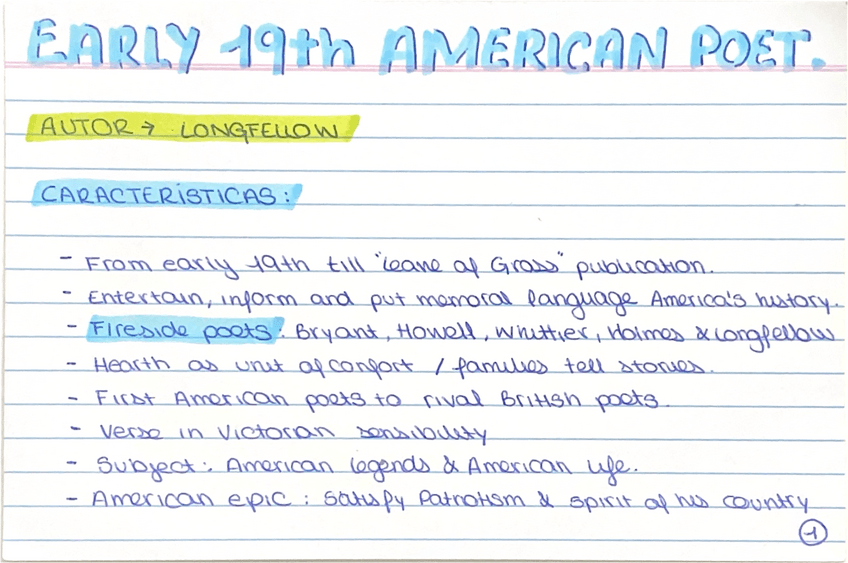 EARLY 19th AMERICAN POET.
AUTOR → LONGFELLOW
CARACTERÍSTICAS:
- From early 19th till "leave of Grass" publication.
- Entertain, inform and put memoral language America's history.
- Fireside poets: Bryant, Howell, Whittier, Holmes & Longfellow
- Hearth as unit of confort / families tell stories.
- First American poets to rival British poets.
- Verse in Victoran sensibility
- Subject: American legends & American life.
- American epic: Satisfy Patriotism & spirit of his country
1